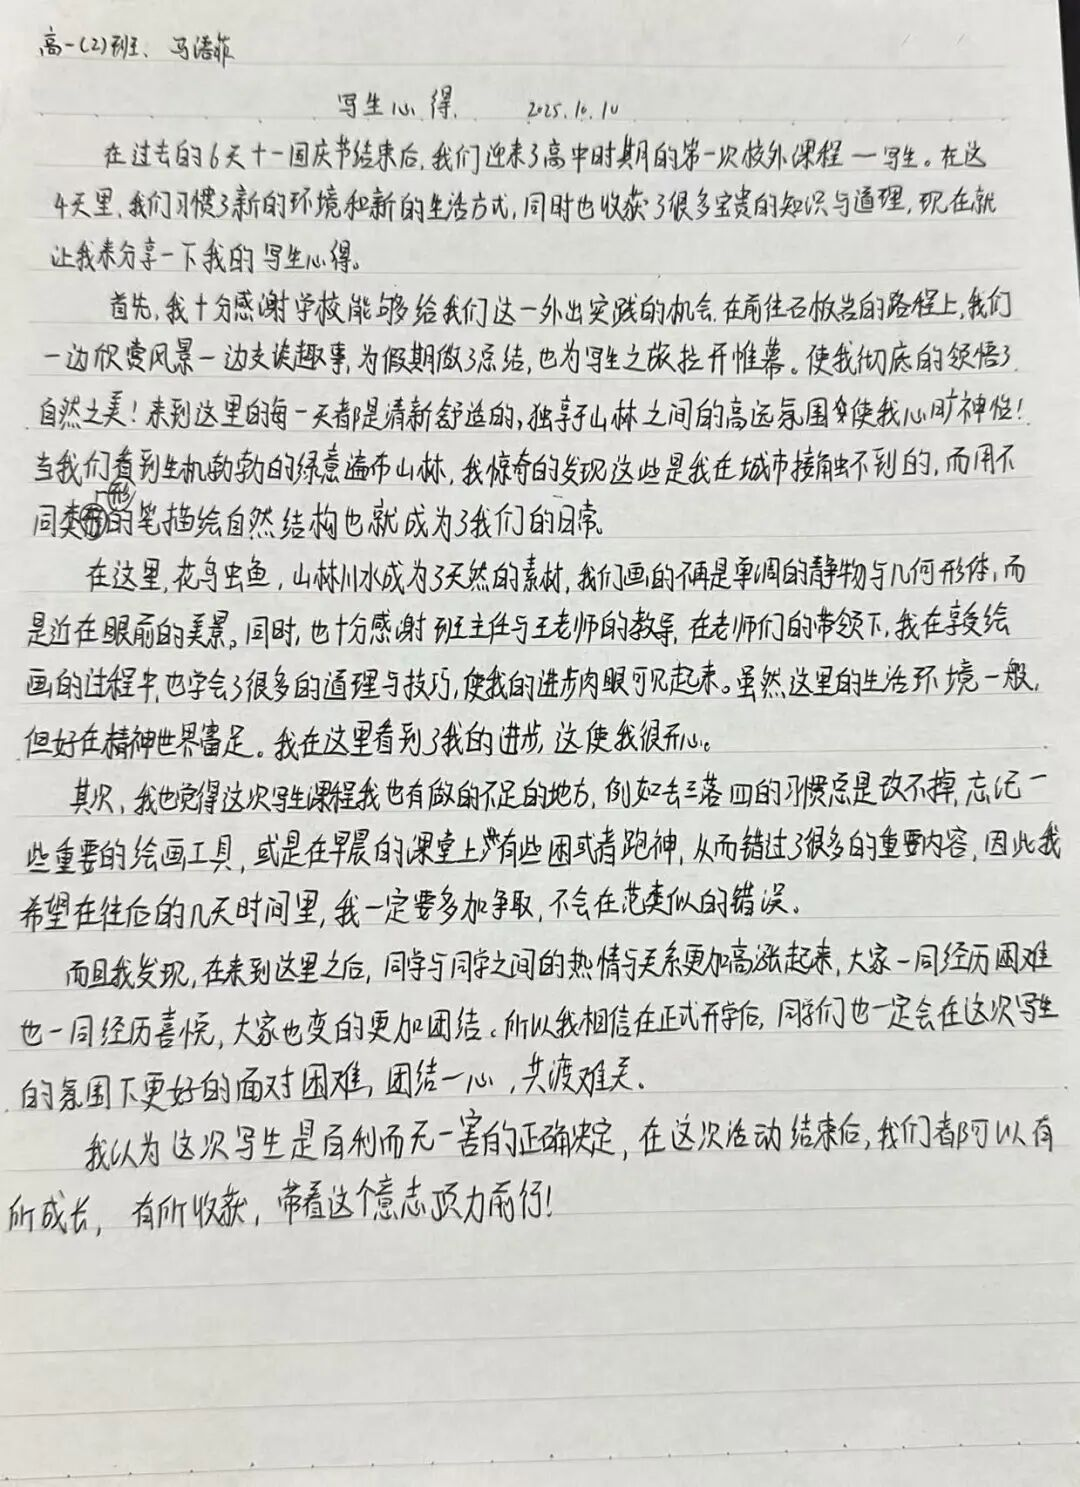 高一(2)班、马潘菲
写生心得. 2025.10.10
在过去的6天十一国庆节结束后,我们迎来了高中时期的第一次校外课程—写生。在这
4天里,我们习惯了新的环境和新的生活方式,同时也收获了很多宝贵的知识与道理,现在就
让我来分享一下我的写生心得。
首先,我十分感谢学校能够给我们这一外出实践的机会.在前往石板岩的路程上,我们
一边欣赏风景一边交谈趣事,为假期做了总结,也为写生之旅拉开帷幕。使我彻底的领悟了
自然之美!来到这里的每一天都是清新舒适的,独享于山林之间的高远氛围使我心旷神怡!
当我们看到生机勃勃的绿意遍布山林,我惊奇的发现这些是我在城市接触不到的,而用不
同类形的笔描绘自然结构也就成为了我们的日常。
在这里,花鸟虫鱼,山林川水成为了天然的素材,我们画的不再是单调的静物与几何形体,而
是近在眼前的美景。同时,也十分感谢班主任与王老师的教导,在老师们的带领下,我在享受绘
画的过程中,也学会了很多的道理与技巧,使我的进步肉眼可见起来。虽然这里的生活环境一般,
但好在精神世界富足。我在这里看到了我的进步,这使我很开心。
其次,我也觉得这次写生课程我也有做的不足的地方,例如丢三落四的习惯总是改不掉,忘记一
些重要的绘画工具,或是在早晨的课堂上有些困或者跑神,从而错过了很多的重要内容,因此我
希望在往后的几天时间里,我一定要多加争取,不会在范类似的错误。
而且我发现,在来到这里之后,同学与同学之间的热情与关系更加高涨起来,大家一同经历困难
也一同经历喜悦,大家也变的更加团结。所以我相信在正式开学后,同学们也一定会在这次写生
的氛围下更好的面对困难,团结一心,共渡难关。
我认为这次写生是百利而无一害的正确决定,在这次活动结束后,我们都可以有
所成长,有所收获,带着这个意志顶力前行!